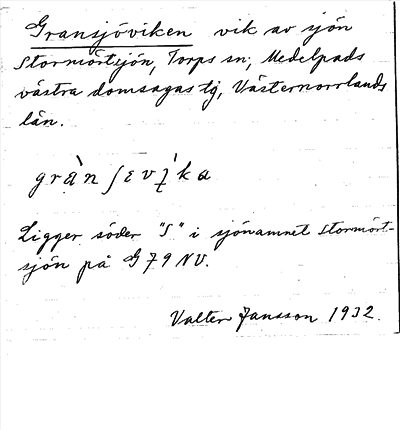 Gransjöviken vik av sjön
Stormörtsjön, Torps sn, Medelpads
västra domsagas tg, Västernorrlands
län.
Ligger söder "S" i sjönamnet Stormört-
sjön på G 79 NV.
Valter Jansson 1932.